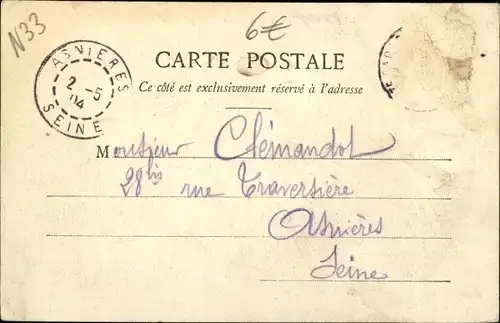 N33
6€
ASNIERES
2 - 5
04
SEINE
CARTE POSTALE
Ce côté est exclusivement réservé à l'adresse
Monsieur Clémandot
28 bis rue Traversière
Asnières
Seine